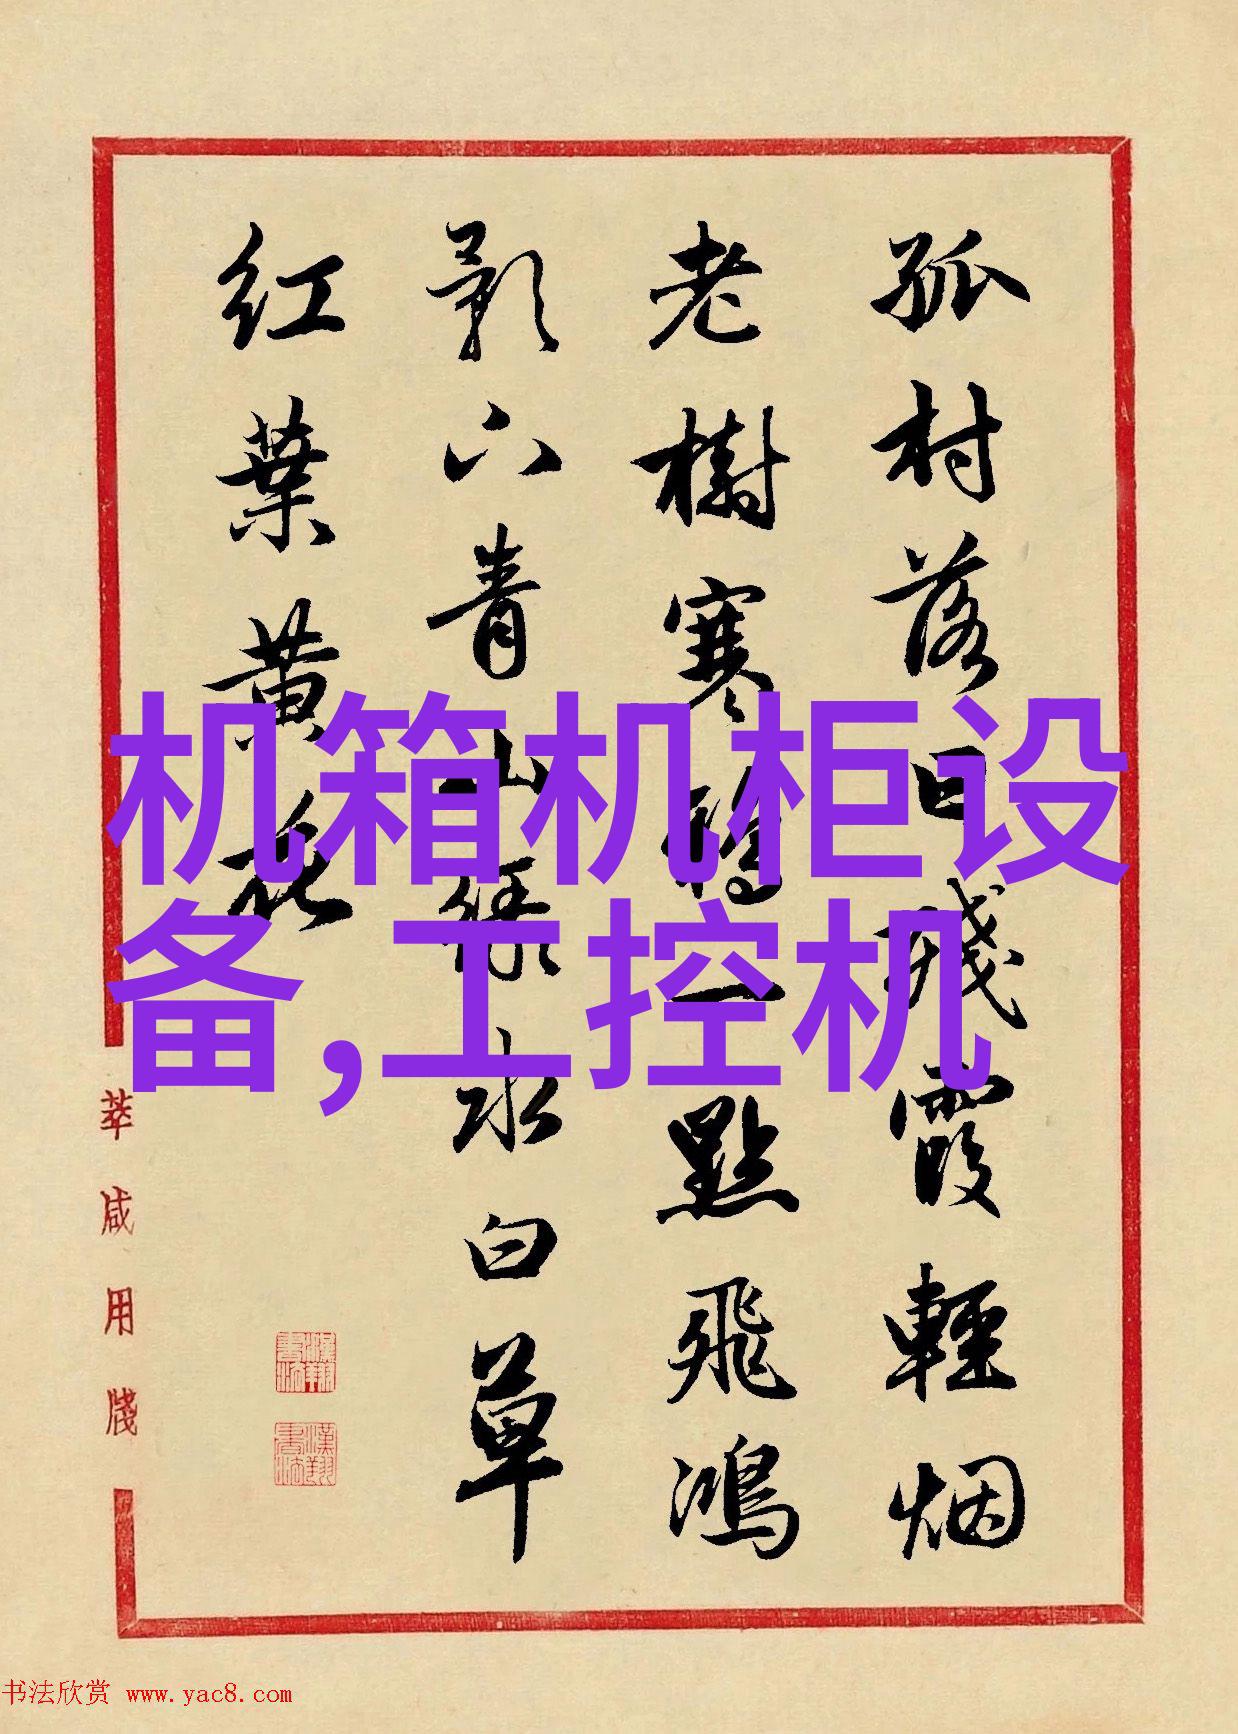 孤村落日殘霞輕烟
老樹寒鴉一點飛鴻
影下青山綠水白草
紅葉黃花
机箱机柜设
备,工控机
用牋
书法欣赏 www.yac8.com